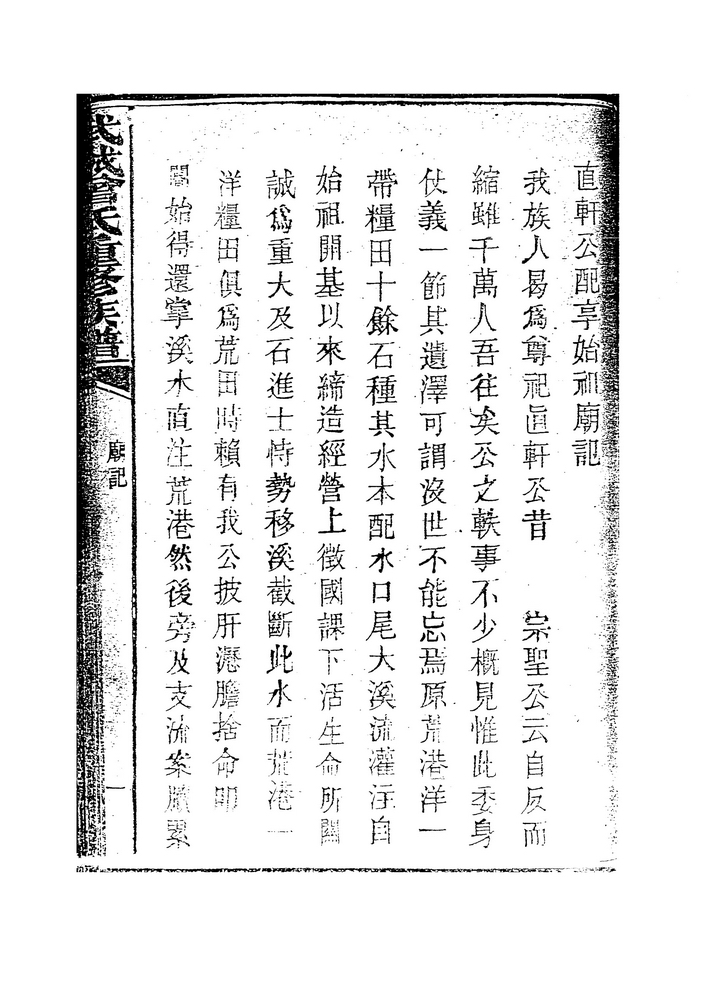 直軒公配享始祖廟記
我族人曷爲尊祀直軒公昔　宗聖公云自反而
縮雖千萬人吾往矣公之軼事不少概見惟此委身
仗義一節其遺澤可謂沒世不能忘焉原荒港洋一
帶糧田十餘石種其水本配水口尾大溪流灌注自
始祖開基以來締造經營上徵國課下活生命所關
誠爲重大及石進士恃勢移溪截斷此水而荒港一
洋糧田俱爲荒田時賴有我公披肝瀝膽捨命叩
閽始得還掌溪水直注荒港然後旁及支流案牘累
武城曾氏重修族譜
廟記
一